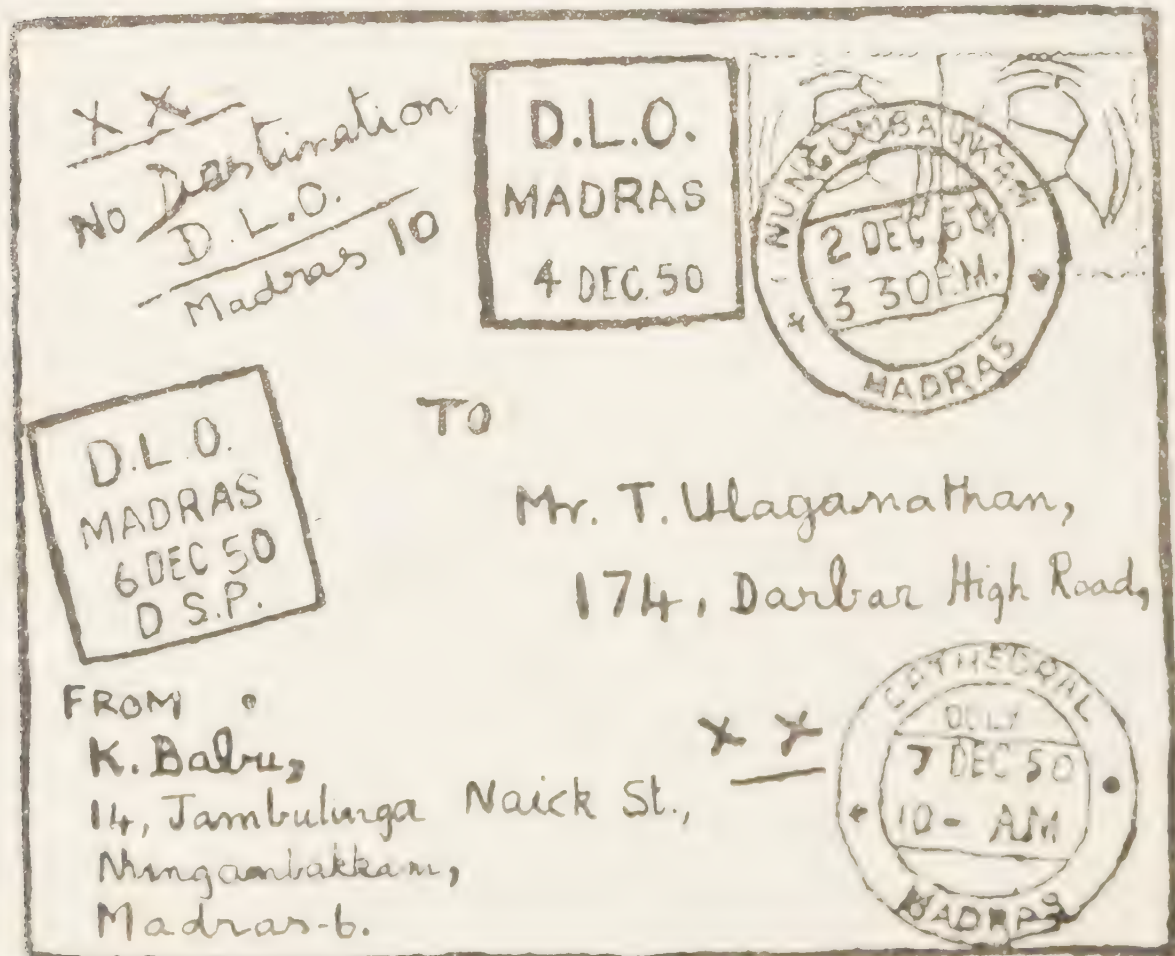 X X
No Destination
D.L.O.
Madras 10
D.L.O.
MADRAS
4 DEC. 50
NUNGUMBAUKAM
2 DEC 50
3 30 P.M.
MADRAS
D.L.O.
MADRAS
6 DEC 50
D S.P.
TO
Mr. T. Ulaganathan,
174, Darbar High Road,
X X
FROM
K. Babu,
14, Jambulinga Naick St.,
Nungambakkam,
Madras-6.
CATHEDRAL
DELY
7 DEC 50
10 - AM
MADRAS